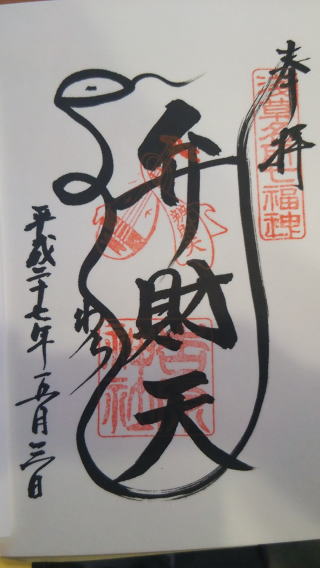 奉拝
浅草名所七福神
弁財天
平成二十七年五月三日